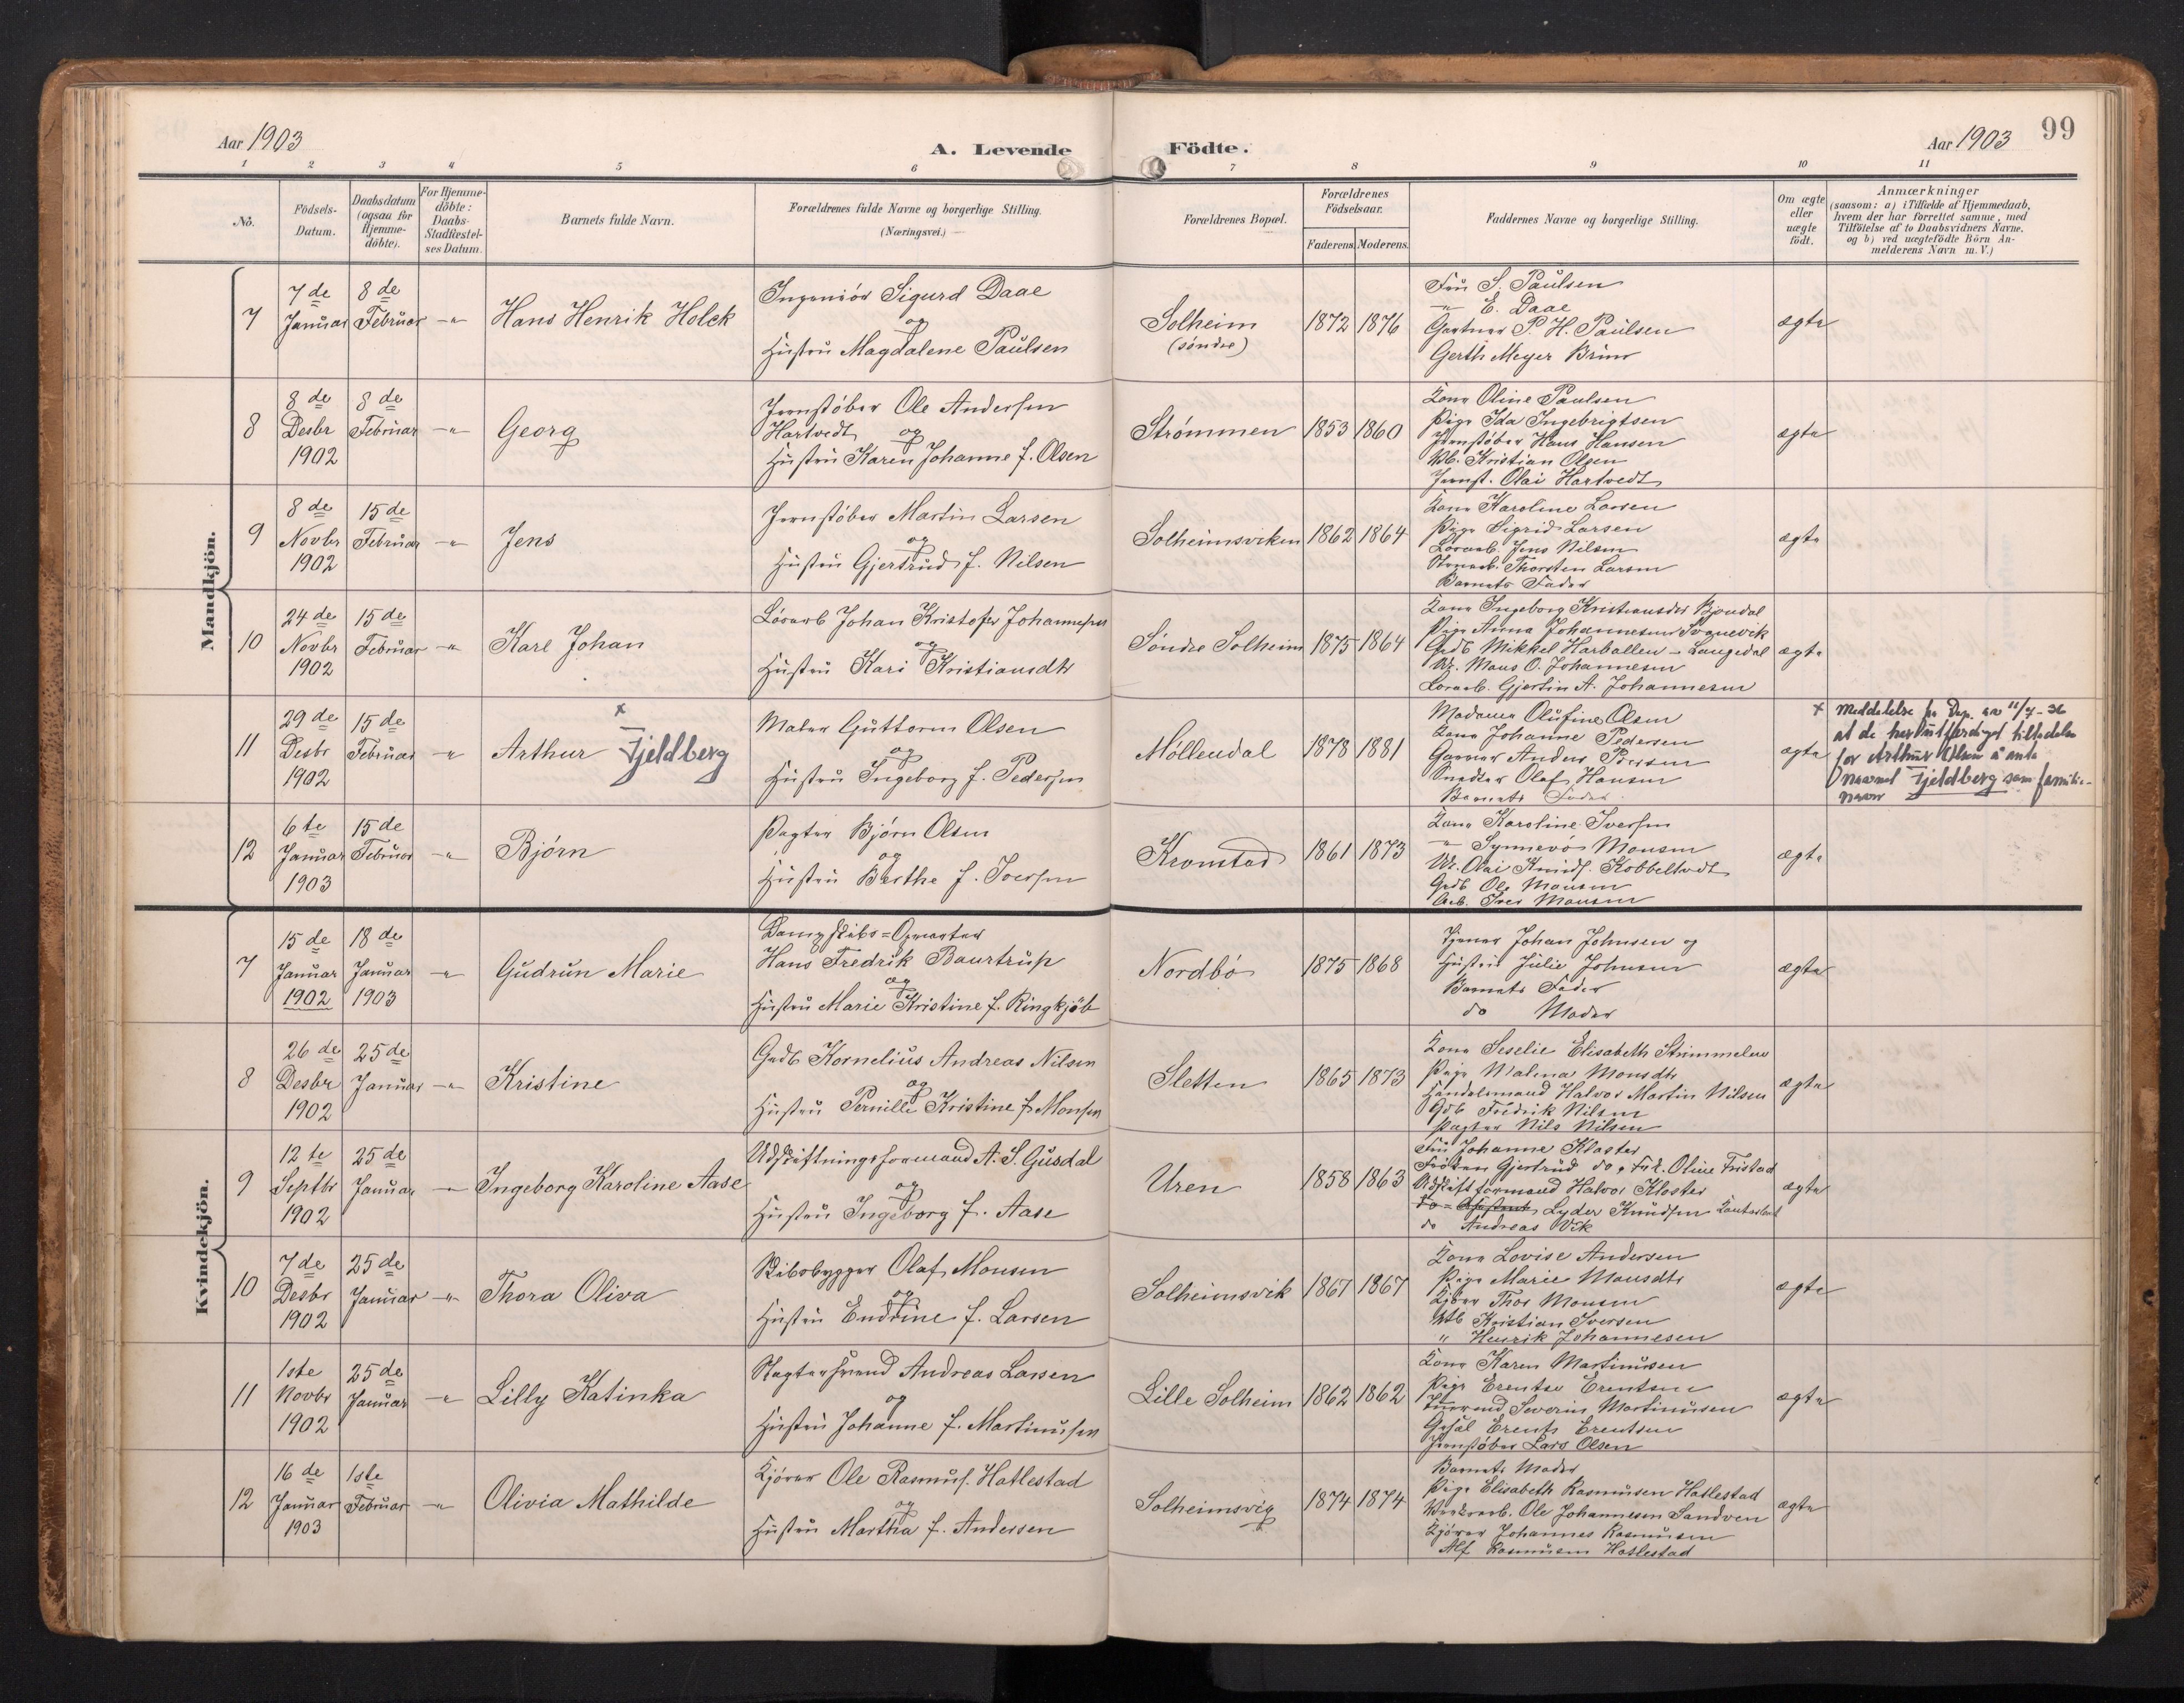 Aar 1903
A. Levende Födte.
Aar 1903
99
1 2 3 4 5 6 7 8 9 10 11
No.
Födsels-
Datum.
Daabsdatum
(ogsaa for
Hjemme-
döbte).
For Hjemme-
döbte:
Daabs-
Stadfæstel-
ses Datum.
Barnets fulde Navn.
Forældrenes fulde Navne og borgerlige Stilling.
(Næringsvei.)
Forældrenes Bopæl.
Forældrenes
Födselsaar.
Faderens. Moderens.
Faddernes Navne og borgerlige Stilling.
Om ægte
eller
uægte
födt.
Anmærkninger
(saasom: a) i Tilfælde af Hjemmedaab,
hvem der har forrettet samme, med
Tilföielse af to Daabsvidners Navne.
og b) ved uægtefödte Börn An-
melderens Navn m. V.)
Mandkjön.
7
7de
Januar
8de
Februar
-"-
Hans Henrik Holck
Ingeniör Sigurd Daae
og
Hustru Magdalene Paulsen
Solheim
(søndre)
1872 1876
Fru S. Paulsen
-"- E. Daae
Gartner P. H. Paulsen
Gerth Meyer Bruun
ægte
8
8de
Desbr
1902
8de
Februar
-"-
Georg
Jernstøber Ole Andersen
Hartvedt og
Hustru Karen Johanne f. Olsen
Strømmen
1853 1860
Kone Oline Paulsen
Pige Ida Ingebrigtsen
Jernstøber Hans Hansen
Kristian Olsen
Jernst. Olai Hartvedt
ægte
9
8de
Novbr
1902
15de
Februar
-"-
Jens
Jernstøber Martin Larsen
og
Hustru Gjertrud f. Nilsen
Solheimsviken
1862 1864
Kone Karoline Larsen
Pige Sigrid Larsen
Jens Nilsen
Thorsten Larsen
Barnets Fader
ægte
10
24de
Novbr
1902
15de
Februar
-"-
Karl Johan
Lösarb Johan Kristofer Johannesen
og
Hustru Kari Kristiansdtr
Søndre Solheim
1875 1864
Kone Ingeborg Kristiansdtr Bjøndal
Pige Anna Johannesen Sognevik
Grdb Mikkel Harballen - Langedal
Uk. Mons O. Johannesen
Gjertin A. Johannesen
ægte
11
29de
Desbr
1902
15de
Februar
-"-
x
Arthur Fjeldberg
Maler Guttorm Olsen
og
Hustru Ingeborg f. Pedersen
Møllendal
1878 1881
Madame Olufine Olsen
Kone Johanne Pedersen
Garver Anders
Snedker Olaf Hansen
Barnets Fader
ægte
x Meddelelse fra Dep. av 11/7-36
at de har utferdiget tilladelse
for Arthur Olsen å anta
navnet Fjeldberg som familie-
navn
12
6te
Januar
1903
15de
Februar
-"-
Bjørn
Pagter Bjørn Olsen
og
Hustru Berthe f. Iversen
Kronstad
1861 1873
Kone Karoline Iversen
-"- Synnevö Monsen
Uk. Olai Kobbeltvedt
Grdb Ole Monsen
Arb. Iver Monsen
ægte
Kvindekjön.
7
15de
Januar
1902
18de
Januar
1903
-"-
Gudrun Marie
Dampskibs-Opvarter
Hans Fredrik Baartrup
og
Hustru Marie Kristine f. Ringkjøb
Nordbø
1875 1868
Tjener Johan Johnsen og
Hustru Julie Johnsen
Barnets Fader
do Moder
ægte
8
26de
Desbr
1902
25de
Januar
-"-
Kristine
Grdb Kornelius Andreas Nilsen
og
Hustru Pernille Kristine f. Monsen
Sletten
1865 1873
Kone Seselie Elisabeth Strimmelen
Pige Malena Monsdtr
Handelsmand Halvor Martin Nilsen
Gdb Fredrik Nilsen
Pagter Nils Nilsen
ægte
9
12te
Septbr
1902
25de
Januar
-"-
Ingeborg Karoline Aase
Udskiftningsformand A. S. Gusdal
og
Hustru Ingeborg f. Aase
Uren
1858 1863
Fru Johanne Kloster
Frøken Gjertrud do, Frk. Oline Tristad
Udskift formand Halvor Kloster
do - Lyder Knudsen
do Andreas Vik
ægte
10
7de
Desbr
1902
25de
Januar
-"-
Thora Oliva
Skibsbygger Olaf Monsen
og
Hustru Endrine f. Larsen
Solheimsvik
1867 1867
Kone Lovise Andersen
Pige Marie Monsdtr
Kjører Thor Monsen
Kristian Iversen
" Henrik Johannesen
ægte
11
1ste
Novbr
1902
25de
Januar
-"-
Lilly Katinka
Slagtersvend Andreas Larsen
og
Hustru Johanne f. Martinusen
Lille Solheim
1862 1862
Kone Karen Martinusen
Pige Erentse Erentsen
Severin Martinusen
Erents Erentsen
Jernstøber Lars Olsen
ægte
12
16de
Januar
1903
1ste
Februar
-"-
Olivia Mathilde
Kjører Ole Rasmus. Hatlestad
og
Hustru Martha f. Andersen
Solheimsvig
1874 1874
Barnets Moder
Pige Elisabeth Rasmusen Hatlestad
Ole Johannesen Sandven
Kjører Johannes Rasmusen
Alf Rasmusen Hatlestad
ægte